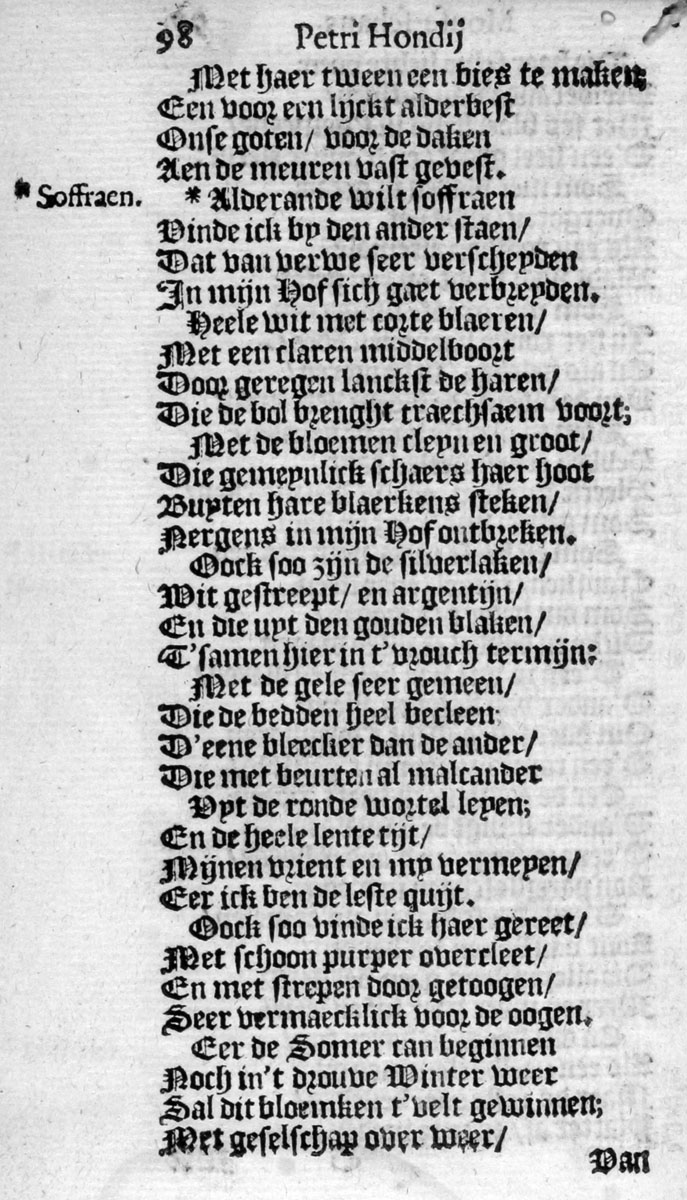 98 Petri Hondij
Met haer tween een bies te maken;
Een voor een lijckt alderbest
Onse goten/ voor de daken
Aen de meuren vast gevest.
* Soffraen. * Alderande wilt soffraen
Vinde ick by den ander staen/
Dat van verwe seer verscheyden
In mijn Hof sich gaet verbreyden.
Heele wit met corte blaeren/
Met een claren middelboort
Door geregen lanckst de haren/
Die de bol brenght traechsaem voort;
Met de bloemen cleyn en groot/
Die gemeynlick schaers haer hoot
Buyten hare blaerkens steken/
Nergens in mijn Hof ontbreken.
Oock soo zijn de silverlaken/
Wit gestreept/ en argentijn/
En die uyt den gouden blaken/
T'samen hier in t'vrouch termijn:
Met de gele seer gemeen/
Die de bedden heel becleen
D'eene bleecker dan de ander/
Die met beurten al malcander
Uyt de ronde wortel leyen;
En de heele lente tijt/
Mijnen vrient en my vermeyen/
Eer ick ben de leste quijt.
Oock soo vinde ick haer gereet/
Met schoon purper overcleet/
En met strepen door getoogen/
Seer vermaecklick voor de oogen.
Eer de Somer can beginnen
Noch in't drouve Winter weer
Sal dit bloemken t'velt gewinnen;
Met geselschap over weer/
Dan